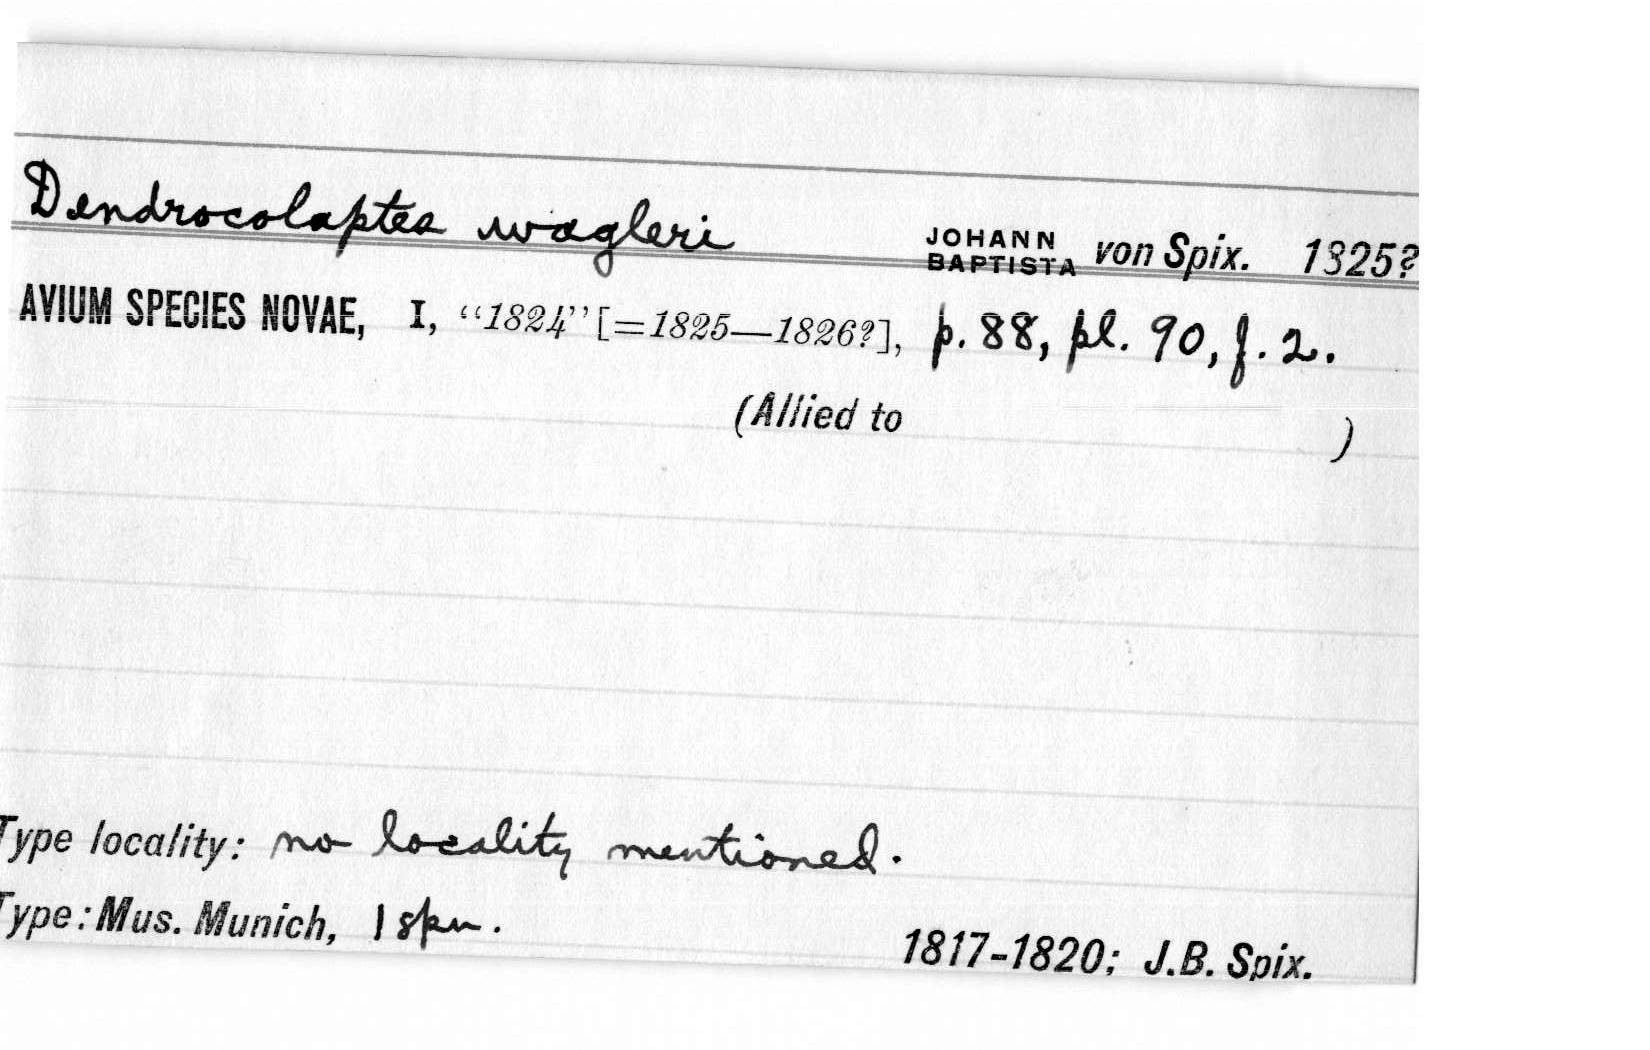 Dendrocolaptes wagleri JOHANN BAPTISTA von Spix. 1825?
AVIUM SPECIES NOVAE, I, “1824” [=1825—1826?], p. 88, pl. 90, f. 2.
(Allied to )
Type locality: no locality mentioned.
Type: Mus. Munich, 1 spn. 1817-1820; J.B. Spix.